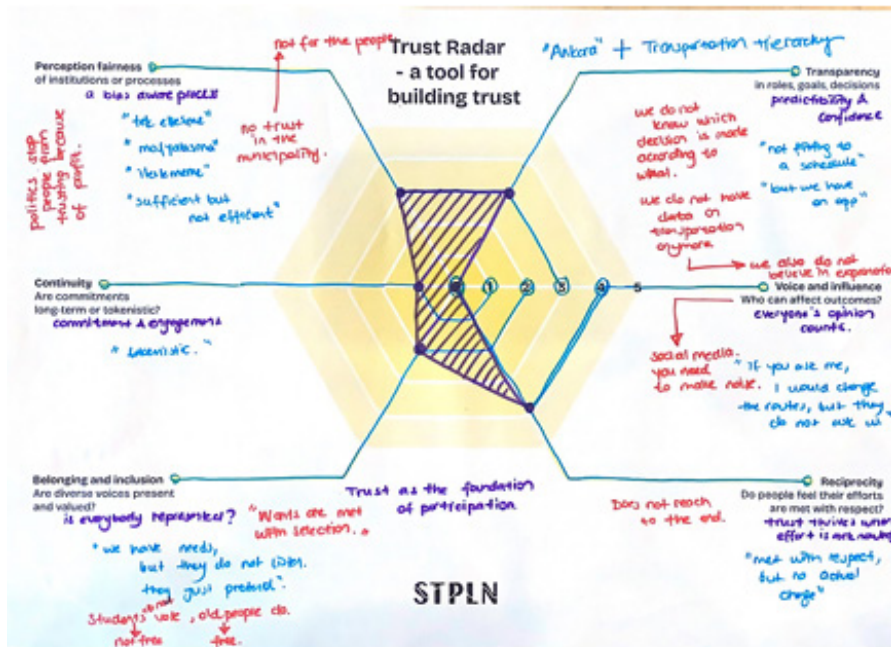 Trust Radar
- a tool for
building trust
Perception fairness
of institutions or processes
a bias aware process
"tek elleşme"
"sufficient but
not efficient"
politics stop
people from
trusting because
of profit.
not for the people
no trust
in the
municipality.
"Ankara" + Transportation Hierarchy
Transparency
in roles, goals, decisions
predictibility &
confidence
"not fitting to
a schedule"
"but we have
an app"
we do not
know which
decision is made
according to
what.
we do not have
data on
transportation
anymore
we also do not
believe in
Continuity
Are commitments
long-term or tokenistic?
commitment & engagement
"tokenistic."
0 1 2 3 4 5
Voice and influence
Who can affect outcomes?
everyone's opinion
counts.
social media.
you need
to make noise.
"If you ask me,
I would change
the routes, but they
do not ask
Belonging and inclusion
Are diverse voices present
and valued?
is everybody represented?
"we have needs,
but they do not listen.
they just pretend".
"Wants are met
with selection."
Students do not vote, old people do.
not free
free.
Trust as the foundation
of participation.
Does not reach
to the end.
Reciprocity
Do people feel their efforts
are met with respect?
trust thrives when
effort is
"met with respect,
but no actual
change"
STPLN